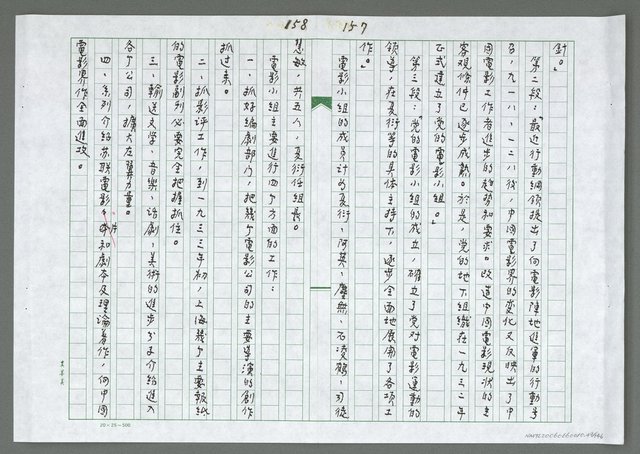 158 157
針。」
第二段：「最近行動綱領提出了向電影陣地進軍的行動号
召，九一八、一二八後，中國電影界的变化又反映出了中
國電影工作者進步的趋势和要求。改造中國電影現狀的主
客观條件已逐步成熟。於是，党的地下組織在一九三三年
正式建立了党的電影小組。」
第三段：「党的電影小組的成立，確立了党对電影運動的
領導，在夏衍等的具体主持下，逐步全面地展開了各項工
作。」
電影小組的成員計為夏衍、阿英、塵無、石凌鶴、司徒
慧敏，共五人，夏衍任組長。
電影小組主要進行四个方面的工作：
一、抓好編劇部门，把幾个電影公司的主要導演的創作
抓过来。
二、抓影評工作，到一九三三年初，上海幾个主要報紙
的電影副刊必要完全把握抓住。
三、輸送文学、音樂、話劇、美術的進步分子介紹進入
各个公司，擴大左翼力量。
四、系列介紹苏联電影片和劇本及理論著作，向中國
電影界作全面進攻。
20×25=500